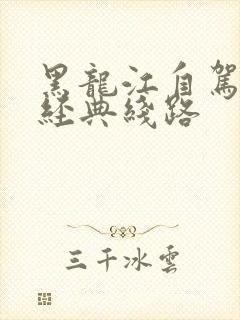 黑龍江自駕
經典綫路
三千冰雲